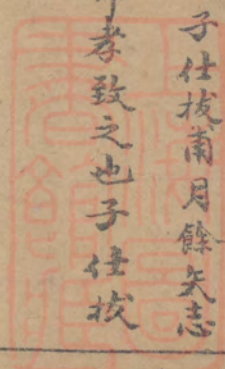 子仕拔甫月餘矣志
孝致之也子仕拔